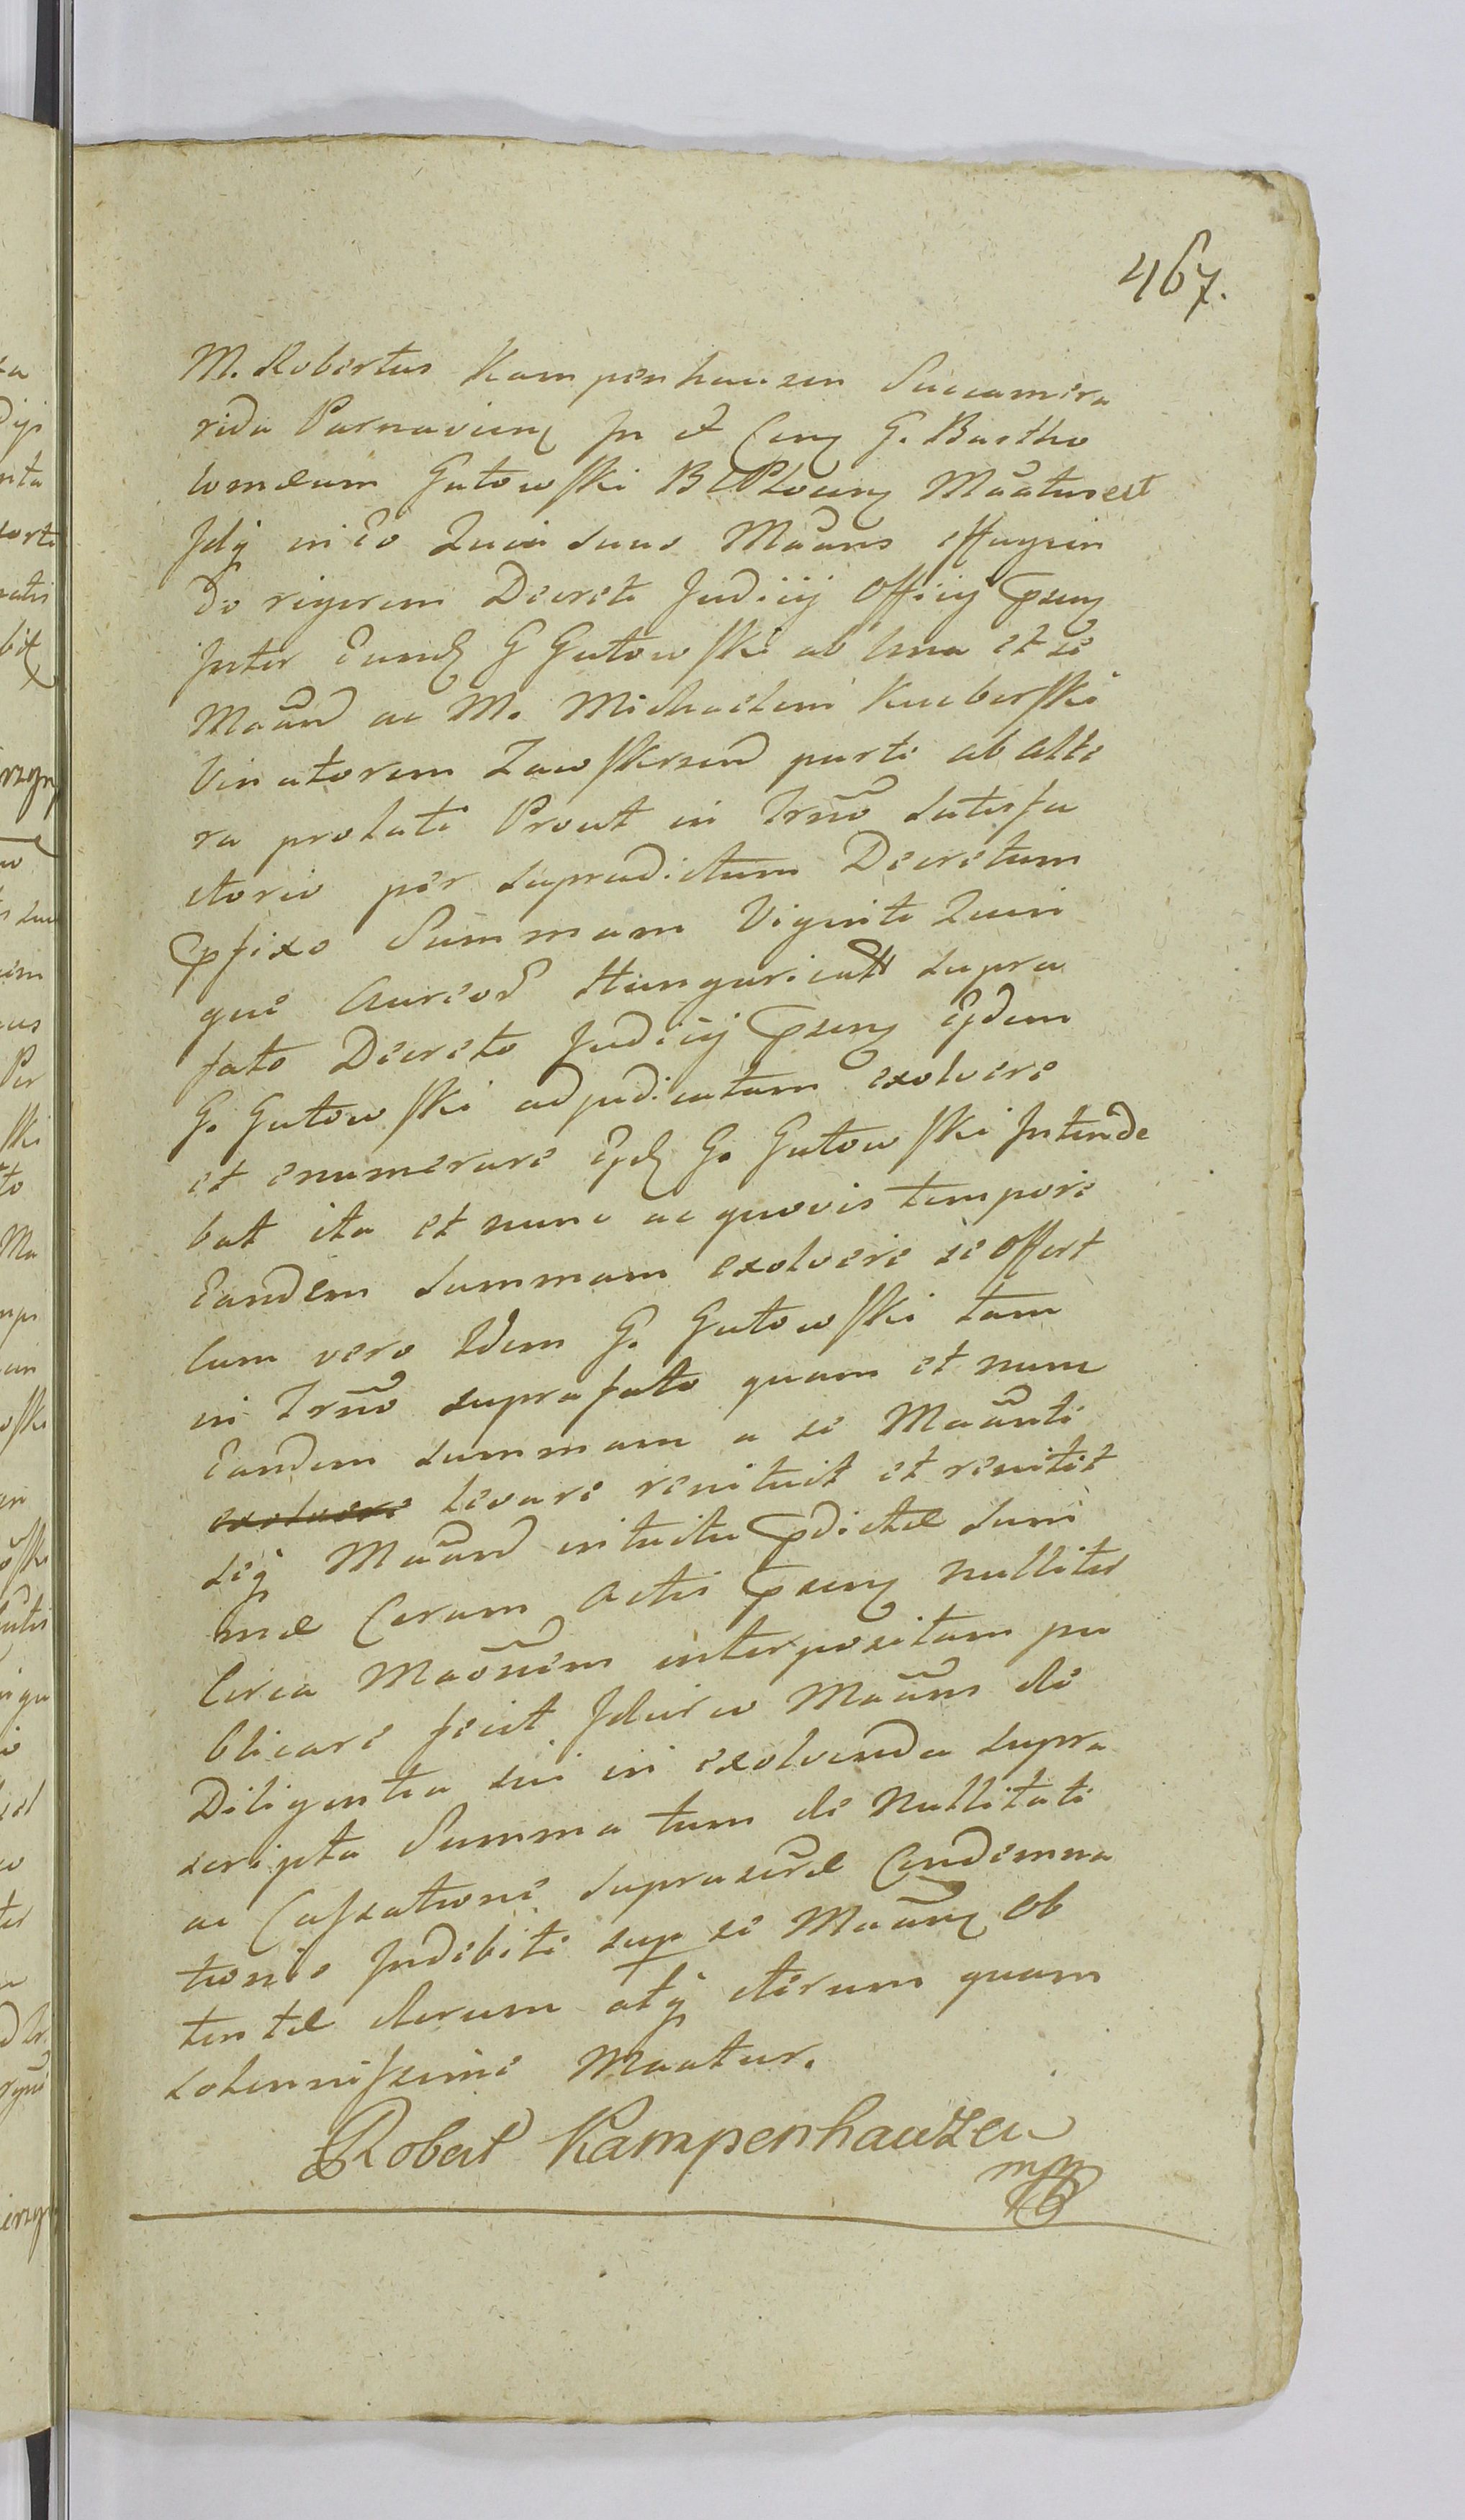 467.
M. Robertus Kampenhausen Succamera
rida Parnavien͠ In et Con͠ G. Bartho
lomæum Gutowski BCPloceñ Ma͠atus est
Idq̃ in Eo Quia suus Ma͠ans effugien
do rigorem Decreti Judicij Officij p͠señ
Inter Eund͠ G Gutowski ab Una et se
Ma͠an͠ ac M. Michaelem Kucborski
Vin atorem Zawskrzen͠ parte ab alte
ra prolati Prout in Tr͠no satisfa
ctorio per supradictum Decretum
p͠fixo Summam Viginti Quin
que Aureor͠ Hungarical͠ supra
fato Decreto Judicij p͠señ Ejdem
G. Gutowski adjudicatam exolvere
et enumerare Ejd͠ G. Gutowski Intende
bat ita et nunc ac quovis tempore
Eandem summam exolvere se offert
Cum vero Idem G. Gutowski tam
in Tr͠no suprafato quam et nunc
Eandem summam a se Ma͠anti
exolvere levare renituit et renitit
seq̃ Ma͠an͠ intuitu p͠dictæ Sum
mæ Coram Actis p͠señ nulliter
Circa Mao͠nem interpositam pu
blicare fecit Idcirco Ma͠ans de
Diligentia sui in exolvenda supra
scripta Summa tum de Nullitate
ac Cassatione suprascr͠æ Condemna
tionis Indebite sup se Ma͠an͠ ob
tentæ iterum atq̃ iterum quam
solennissime Maatur.
Robert Kampenhauzen
mp